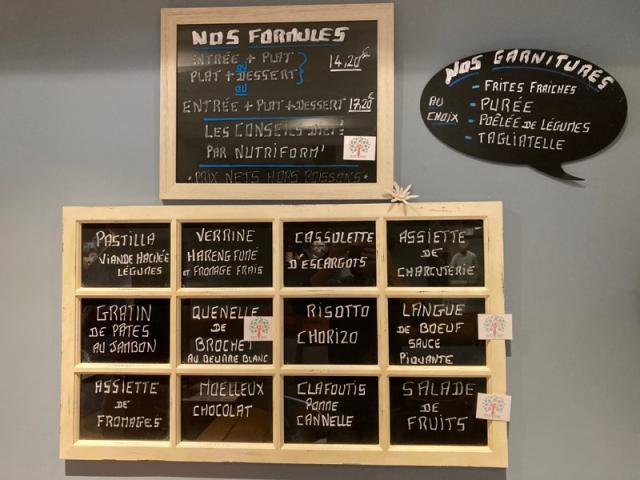 NOS FORMULES
ENTRÉE + PLAT
ou
PLAT + DESSERT
14,20€
ou
ENTRÉE + PLAT + DESSERT 17,20€
LES CONSEILS DIET:
PAR NUTRIFORM'
• PRIX NETS HORS BOISSONS •
NOS GARNITURES
AU
CHOIX
- FRITES FRAÎCHES
- PURÉE
- POÊLÉE DE LÉGUMES
- TAGLIATELLE
PASTILLA
VIANDE HACHÉE
LÉGUMES
VERRINE
HARENG FUMÉ
ET FROMAGE FRAIS
CASSOLETTE
D'ESCARGOTS
ASSIETTE
DE
CHARCUTERIE
GRATIN
DE PÂTES
AU JAMBON
QUENELLE
DE
BROCHET
AU BEURRE BLANC
RISOTTO
CHORIZO
LANGUE
DE BOEUF
SAUCE
PIQUANTE
ASSIETTE
DE
FROMAGES
MOELLEUX
CHOCOLAT
CLAFOUTIS
POMME
CANNELLE
SALADE
DE
FRUITS